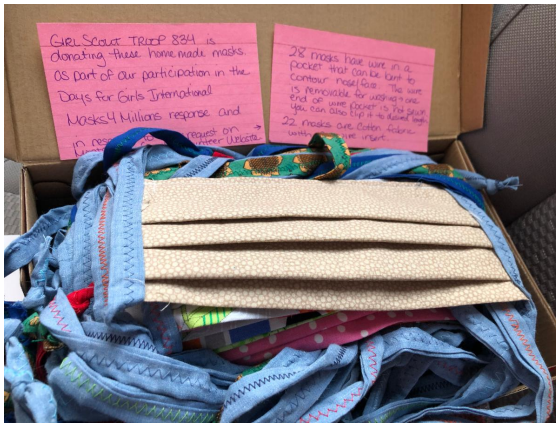 GIRL SCOUT TROOP 834 is
donating these homemade masks
as part of our participation in the
Days for Girls International
Masks4Millions response and
in request on →
Website
28 masks have wire in a
pocket that can be bent to
contour nose/face. The wire
is removable for washing - one
end of wire pocket is not sewn.
You can also clip it to desired
22 masks are cotton fabric
insert.